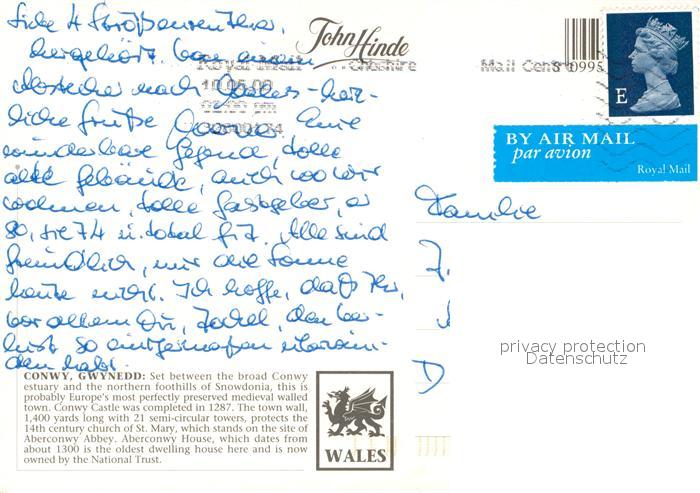 Liebe 4
hergehört. Von einem
nach Wales - herz-
liche Grüße Eine
wunderbare Gegend, tolle
alte Gebäude, auch wo wir
wohnen, tolle Gastgeber, er
80, sie 74 u. total fit. Alle sind
freundlich, nur die Sonne
heute nicht. Ich hoffe, daß Ihr,
vor allem Du, den Ver-
lust so einigermaßen überwun-
den habt.
CONWY, GWYNEDD: Set between the broad Conwy
estuary and the northern foothills of Snowdonia, this is
probably Europe's most perfectly preserved medieval walled
town. Conwy Castle was completed in 1287. The town wall,
1,400 yards long with 21 semi-circular towers, protects the
14th century church of St. Mary, which stands on the site of
Aberconwy Abbey. Aberconwy House, which dates from
about 1300 is the oldest dwelling house here and is now
owned by the National Trust.
WALES
John Hinde
Royal Mail Cheshire Mail Centre
E
BY AIR MAIL
par avion
Royal Mail
Familie
D
privacy protection
Datenschutz